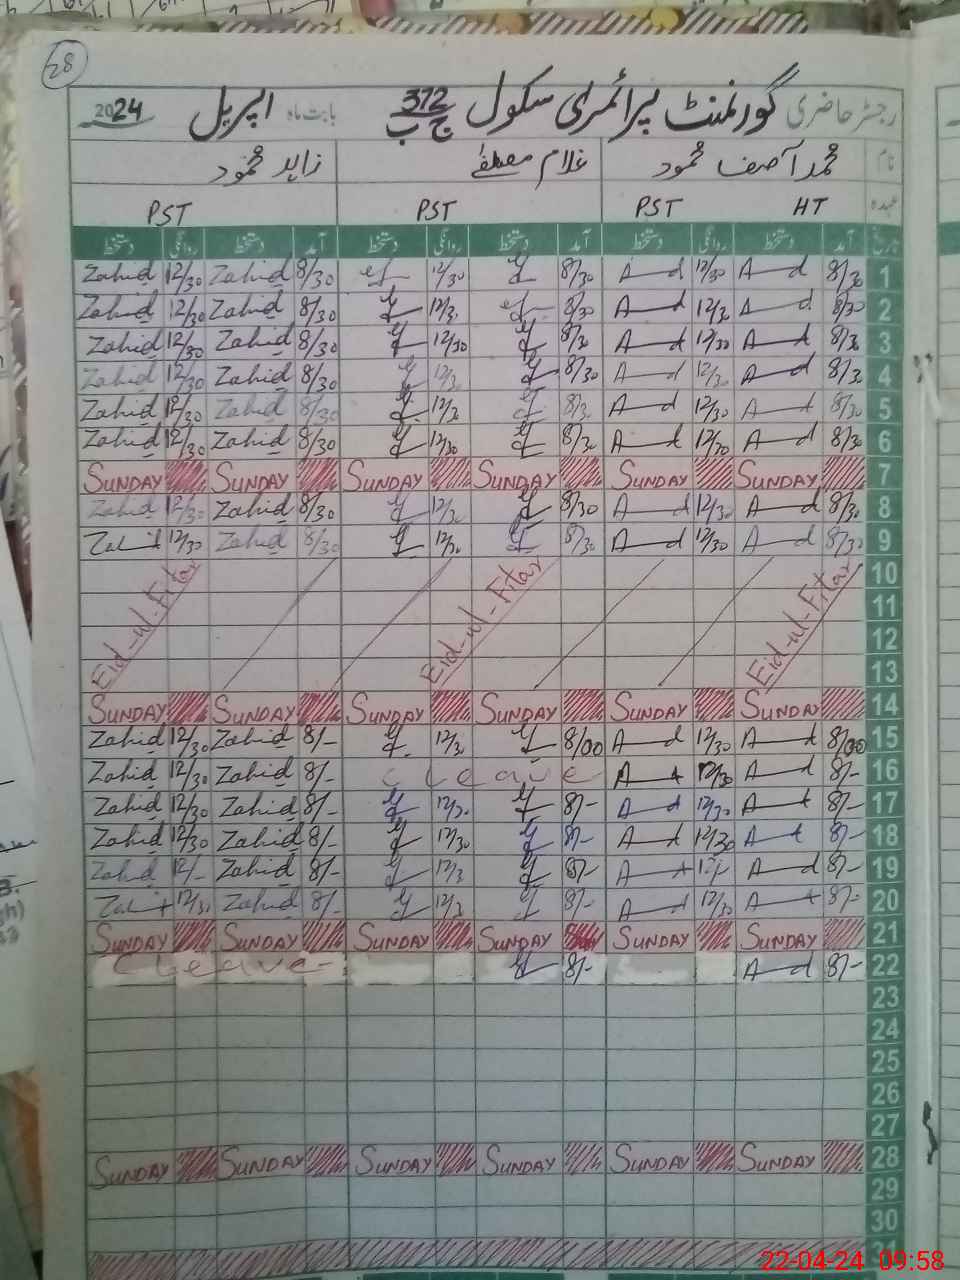 28
رجسٹر حاضری گورنمنٹ پرائمری سکول 372 ج ب بابت ماہ اپریل 2024
نام محمد آصف محمود غلام مصطفےٰ زاہد محمود
عہدہ HT PST PST PST
تاریخ آمد دستخط روانگی دستخط آمد دستخط روانگی دستخط آمد دستخط روانگی دستخط
Zahid 12/30 Zahid 8/30 12/30 8/30 A—d 12/30 A—d 8/30 1
Zahid 12/30 Zahid 8/30 12/3 8/30 A—d 12/30 A—d 8/30 2
Zahid 12/30 Zahid 8/30 12/30 8/30 A—d 12/30 A—d 8/30 3
Zahid 12/30 Zahid 8/30 12/3 8/30 A—d 12/30 A—d 8/30 4
Zahid 12/30 Zahid 8/30 12/30 8/3 A—d 12/30 A—d 8/30 5
Zahid 12/30 Zahid 8/30 12/30 8/30 A—d 12/30 A—d 8/30 6
SUNDAY SUNDAY SUNDAY SUNDAY SUNDAY SUNDAY 7
Zahid 12/30 Zahid 8/30 12/30 8/30 A—d 12/30 A—d 8/30 8
Zahid 12/30 Zahid 8/30 12/30 8/30 A—d 12/30 A—d 8/30 9
Eid-ul-Fitar Eid-ul-Fitar Eid-ul-Fitar 10
11
12
13
SUNDAY SUNDAY SUNDAY SUNDAY SUNDAY SUNDAY 14
Zahid 12/30 Zahid 8/- 12/3 8/00 A—d 12/30 A—d 8/00 15
Zahid 12/30 Zahid 8/- C Leave A—d 12/30 A—d 8/- 16
Zahid 12/30 Zahid 8/- 12/30 8/- A—d 12/30 A—d 8/- 17
Zahid 12/30 Zahid 8/- 12/30 8/- A—d 12/30 A—d 8/- 18
Zahid 12/- Zahid 8/- 12/3 8/- A—d 12/- A—d 8/- 19
Zahid 12/30 Zahid 8/- 12/3 8/- A—d 12/30 A—d 8/- 20
SUNDAY SUNDAY SUNDAY SUNDAY SUNDAY SUNDAY 21
C Leave 8/- A—d 8/- 22
23
24
25
26
27
SUNDAY SUNDAY SUNDAY SUNDAY SUNDAY SUNDAY 28
29
30
31
22-04-24 09:58